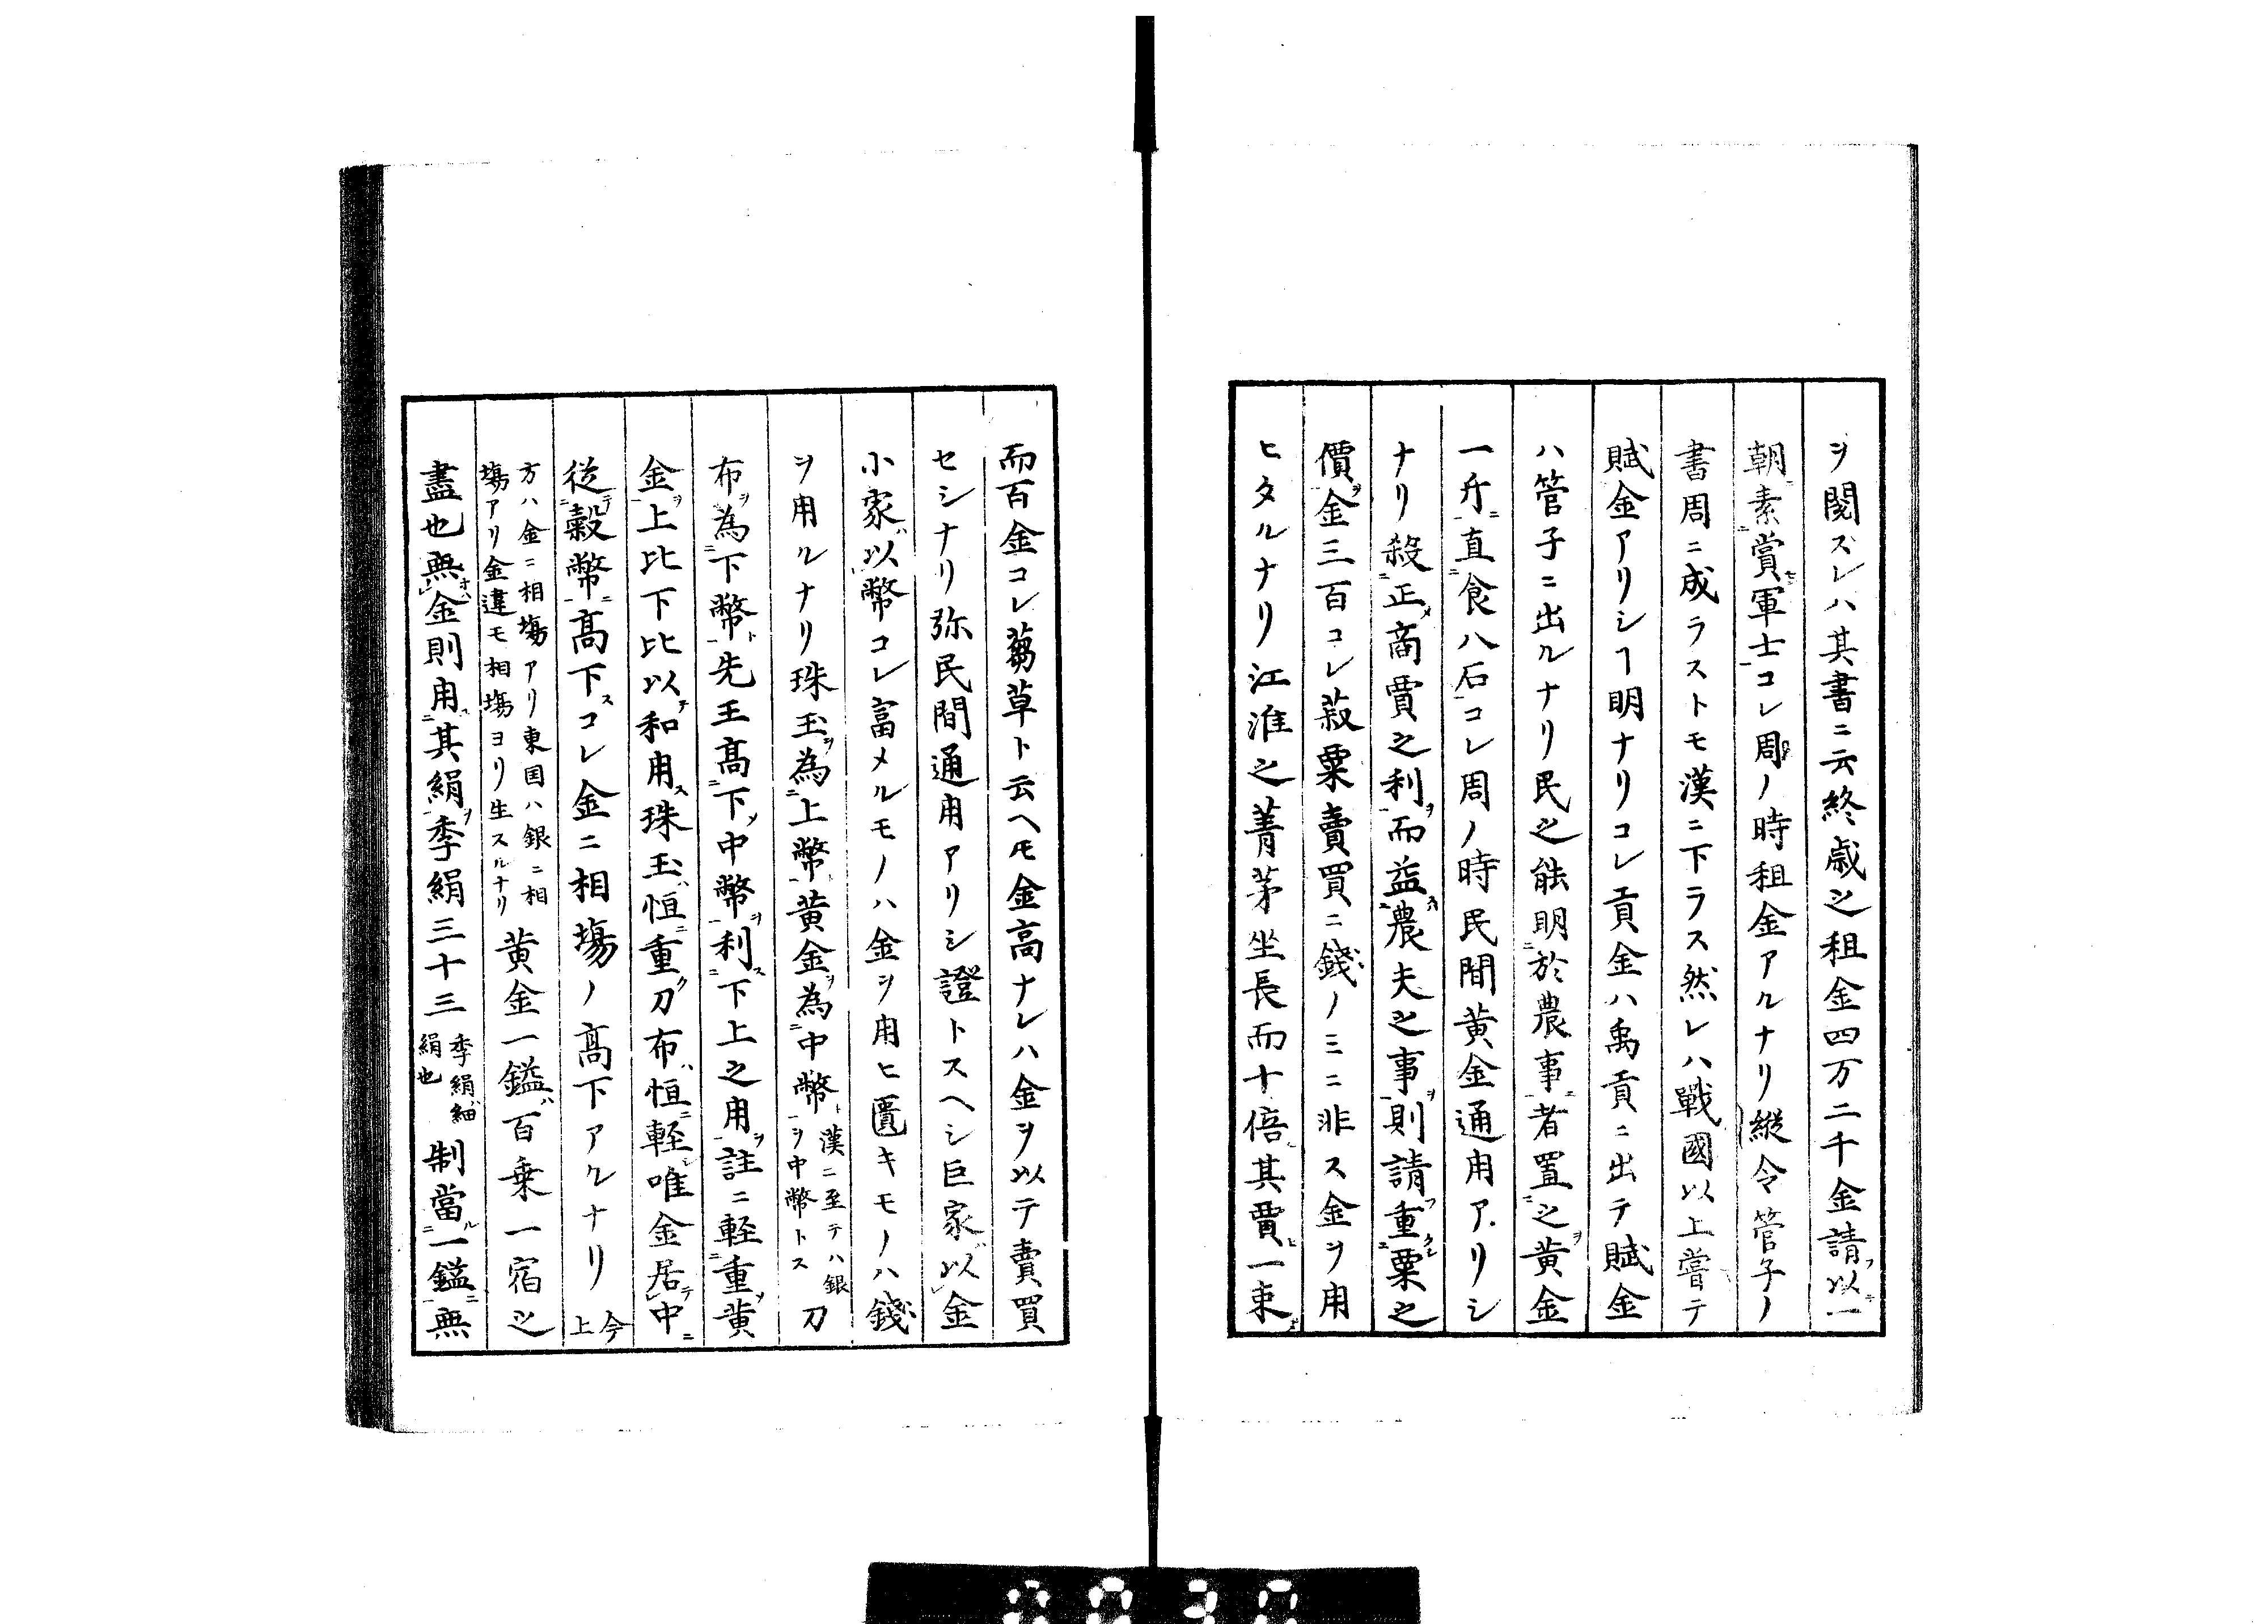 ヲ閲スレハ其書ニ云終歳之租金四万二千金請以一
朝素賞軍士コレ周ノ時租金アルナリ縦令管子ノ
書周ニ成ラストモ漢ニ下ラス然レハ戰國以上嘗テ
賦金アリシヿ明ナリコレ貢金ハ禹貢ニ出テ賦金
ハ管子ニ出ルナリ民之能明於農事者置之黄金
一斤直食八石コレ周ノ時民間黄金通用アリシ
ナリ殺正商賈之利而益農夫之事則請重粟之
價金三百コレ菽粟賣買ニ錢ノミニ非ス金ヲ用
ヒタルナリ江淮之菁茅坐長而十倍其賈一束
而百金コレ蒭草ト云ヘモ金高ナレハ金ヲ以テ賣買
セシナリ弥民間通用アリシ證トスヘシ巨家以金
小家以幣コレ富メルモノハ金ヲ用ヒ匱キモノハ錢
ヲ用ルナリ珠玉為上幣黄金為中幣漢ニ至テハ銀ヲ中幣トス刀
布為下幣先王高下中幣利下上之用註ニ軽重黄
金上比下比以和用珠玉恒重刀布恒軽唯金居中
従穀幣高下コレ金ニ相場ノ高下アルナリ今上
方ハ金ニ相場アリ東国ハ銀ニ相場アリ金違モ相場ヨリ生スルナリ黄金一鎰百乗一宿之
盡也無金則用其絹季絹三十三季絹細絹也制當一鎰無